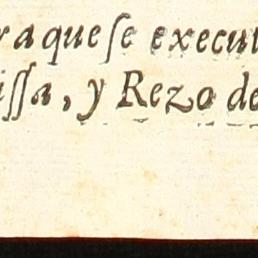 ra que ſe execut
iſſa, y Rezo de